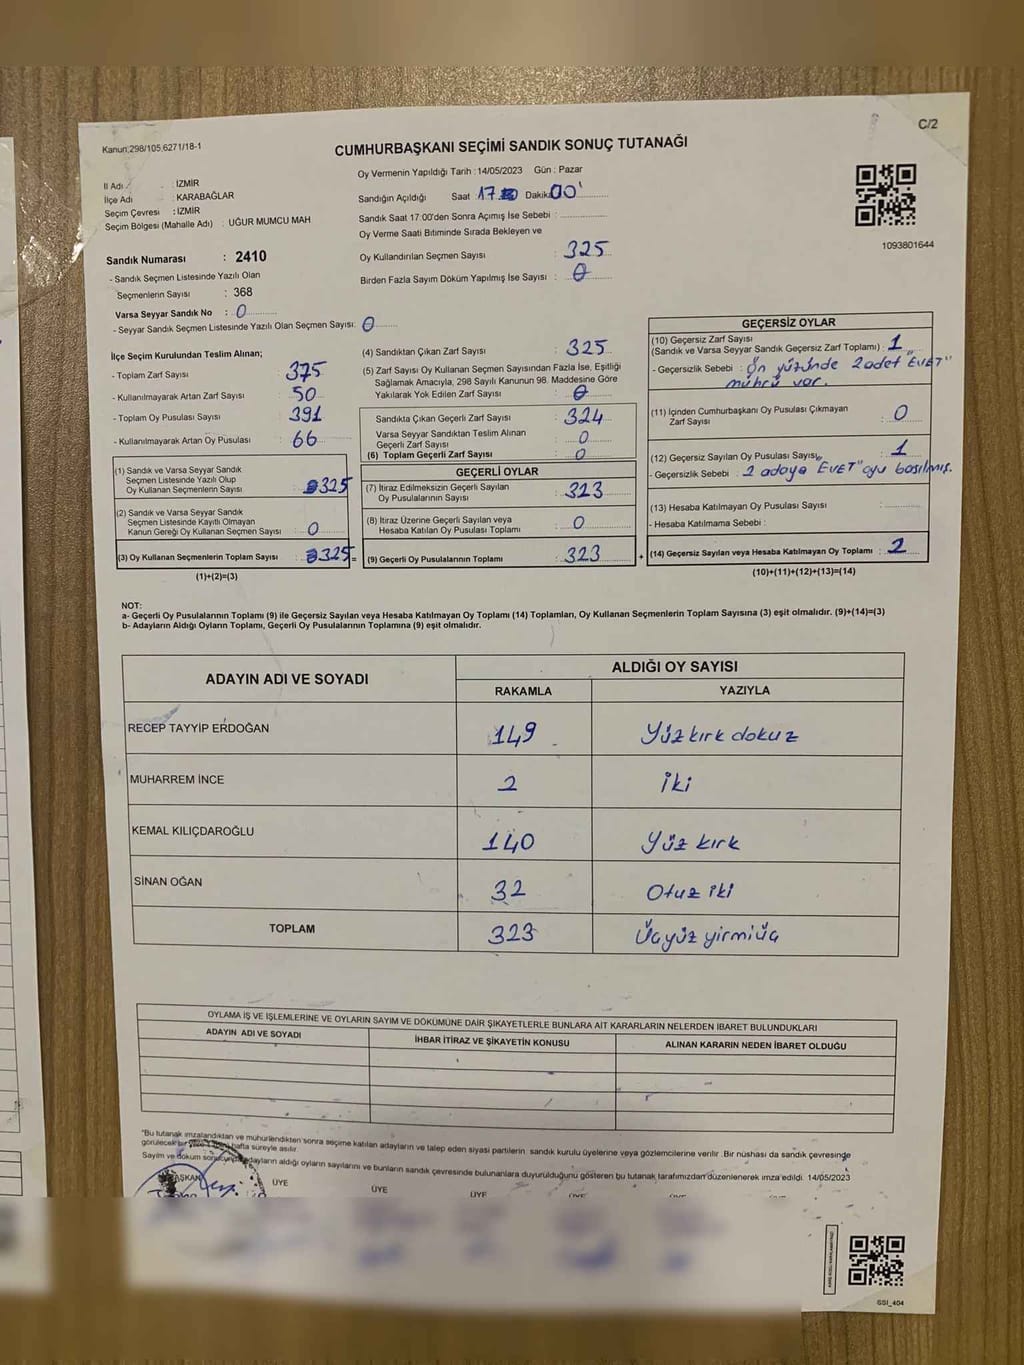 C/2
Kanun;298/105,6271/18-1
CUMHURBAŞKANI SEÇİMİ SANDIK SONUÇ TUTANAĞI
Oy Vermenin Yapıldığı Tarih : 14/05/2023 Gün : Pazar
İl Adı : İZMİR
İlçe Adı : KARABAĞLAR
Seçim Çevresi : İZMİR
Seçim Bölgesi (Mahalle Adı) : UĞUR MUMCU MAH
Sandığın Açıldığı Saat 17 Dakika 00'
Sandık Saat 17:00'den Sonra Açılmış İse Sebebi :
Oy Verme Saati Bitiminde Sırada Bekleyen ve
Oy Kullandırılan Seçmen Sayısı : 325
Birden Fazla Sayım Döküm Yapılmış İse Sayısı : 0
1093801644
Sandık Numarası : 2410
- Sandık Seçmen Listesinde Yazılı Olan
Seçmenlerin Sayısı : 368
Varsa Seyyar Sandık No : 0
- Seyyar Sandık Seçmen Listesinde Yazılı Olan Seçmen Sayısı: 0
İlçe Seçim Kurulundan Teslim Alınan;
- Toplam Zarf Sayısı : 375
- Kullanılmayarak Artan Zarf Sayısı : 50
- Toplam Oy Pusulası Sayısı : 391
- Kullanılmayarak Artan Oy Pusulası : 66
(1) Sandık ve Varsa Seyyar Sandık
Seçmen Listesinde Yazılı Olup
Oy Kullanan Seçmenlerin Sayısı : 325
(2) Sandık ve Varsa Seyyar Sandık
Seçmen Listesinde Kayıtlı Olmayan
Kanun Gereği Oy Kullanan Seçmen Sayısı : 0
(3) Oy Kullanan Seçmenlerin Toplam Sayısı : 325 =
(1)+(2)=(3)
(4) Sandıktan Çıkan Zarf Sayısı : 325
(5) Zarf Sayısı Oy Kullanan Seçmen Sayısından Fazla İse, Eşitliği
Sağlamak Amacıyla, 298 Sayılı Kanunun 98. Maddesine Göre
Yakılarak Yok Edilen Zarf Sayısı : 0
Sandıkta Çıkan Geçerli Zarf Sayısı : 324
Varsa Seyyar Sandıktan Teslim Alınan
Geçerli Zarf Sayısı : 0
(6) Toplam Geçerli Zarf Sayısı : 0
GEÇERLİ OYLAR
(7) İtiraz Edilmeksizin Geçerli Sayılan
Oy Pusulalarının Sayısı : 323
(8) İtiraz Üzerine Geçerli Sayılan veya
Hesaba Katılan Oy Pusulası Toplamı : 0
(9) Geçerli Oy Pusulalarının Toplamı : 323 +
GEÇERSİZ OYLAR
(10) Geçersiz Zarf Sayısı
(Sandık ve Varsa Seyyar Sandık Geçersiz Zarf Toplamı) : 1
- Geçersizlik Sebebi : Ön yüzünde 2 adet "EVET"
mührü var.
(11) İçinden Cumhurbaşkanı Oy Pusulası Çıkmayan
Zarf Sayısı : 0
(12) Geçersiz Sayılan Oy Pusulası Sayısı : 1
- Geçersizlik Sebebi : 2 adaya "EVET" oyu basılmış.
(13) Hesaba Katılmayan Oy Pusulası Sayısı :
- Hesaba Katılmama Sebebi :
(14) Geçersiz Sayılan veya Hesaba Katılmayan Oy Toplamı : 2
(10)+(11)+(12)+(13)=(14)
NOT:
a- Geçerli Oy Pusulalarının Toplamı (9) ile Geçersiz Sayılan veya Hesaba Katılmayan Oy Toplamı (14) Toplamları, Oy Kullanan Seçmenlerin Toplam Sayısına (3) eşit olmalıdır. (9)+(14)=(3)
b- Adayların Aldığı Oyların Toplamı, Geçerli Oy Pusulalarının Toplamına (9) eşit olmalıdır.
ADAYIN ADI VE SOYADI
ALDIĞI OY SAYISI
RAKAMLA YAZIYLA
RECEP TAYYİP ERDOĞAN 149 Yüz kırk dokuz
MUHARREM İNCE 2 İki
KEMAL KILIÇDAROĞLU 140 Yüz kırk
SİNAN OĞAN 32 Otuz iki
TOPLAM 323 Üçyüz yirmiüç
OYLAMA İŞ VE İŞLEMLERİNE VE OYLARIN SAYIM VE DÖKÜMÜNE DAİR ŞİKAYETLERLE BUNLARA AİT KARARLARIN NELERDEN İBARET BULUNDUKLARI
ADAYIN ADI VE SOYADI İHBAR İTİRAZ VE ŞİKAYETİN KONUSU ALINAN KARARIN NEDEN İBARET OLDUĞU
"Bu tutanak imzalandıktan ve mühürlendikten sonra seçime katılan adayların ve talep eden siyasi partilerin sandık kurulu üyelerine veya gözlemcilerine verilir. Bir nüshası da sandık çevresinde
görülecek bir hafta süreyle asılır.
Sayım ve döküm sonucunda adayların aldığı oyların sayılarını ve bunların sandık çevresinde bulunanlara duyurulduğunu gösteren bu tutanak tarafımızdan düzenlenerek imza edildi. 14/05/2023
BAŞKAN ÜYE ÜYE ÜYE
SSI_404